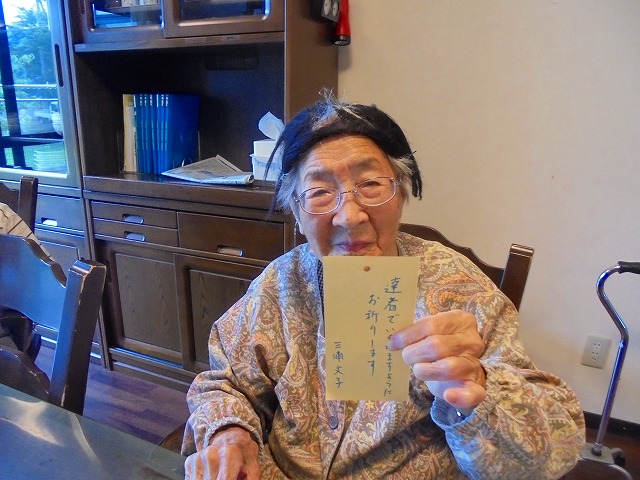 達者でいられますように
お祈りします
三浦文子